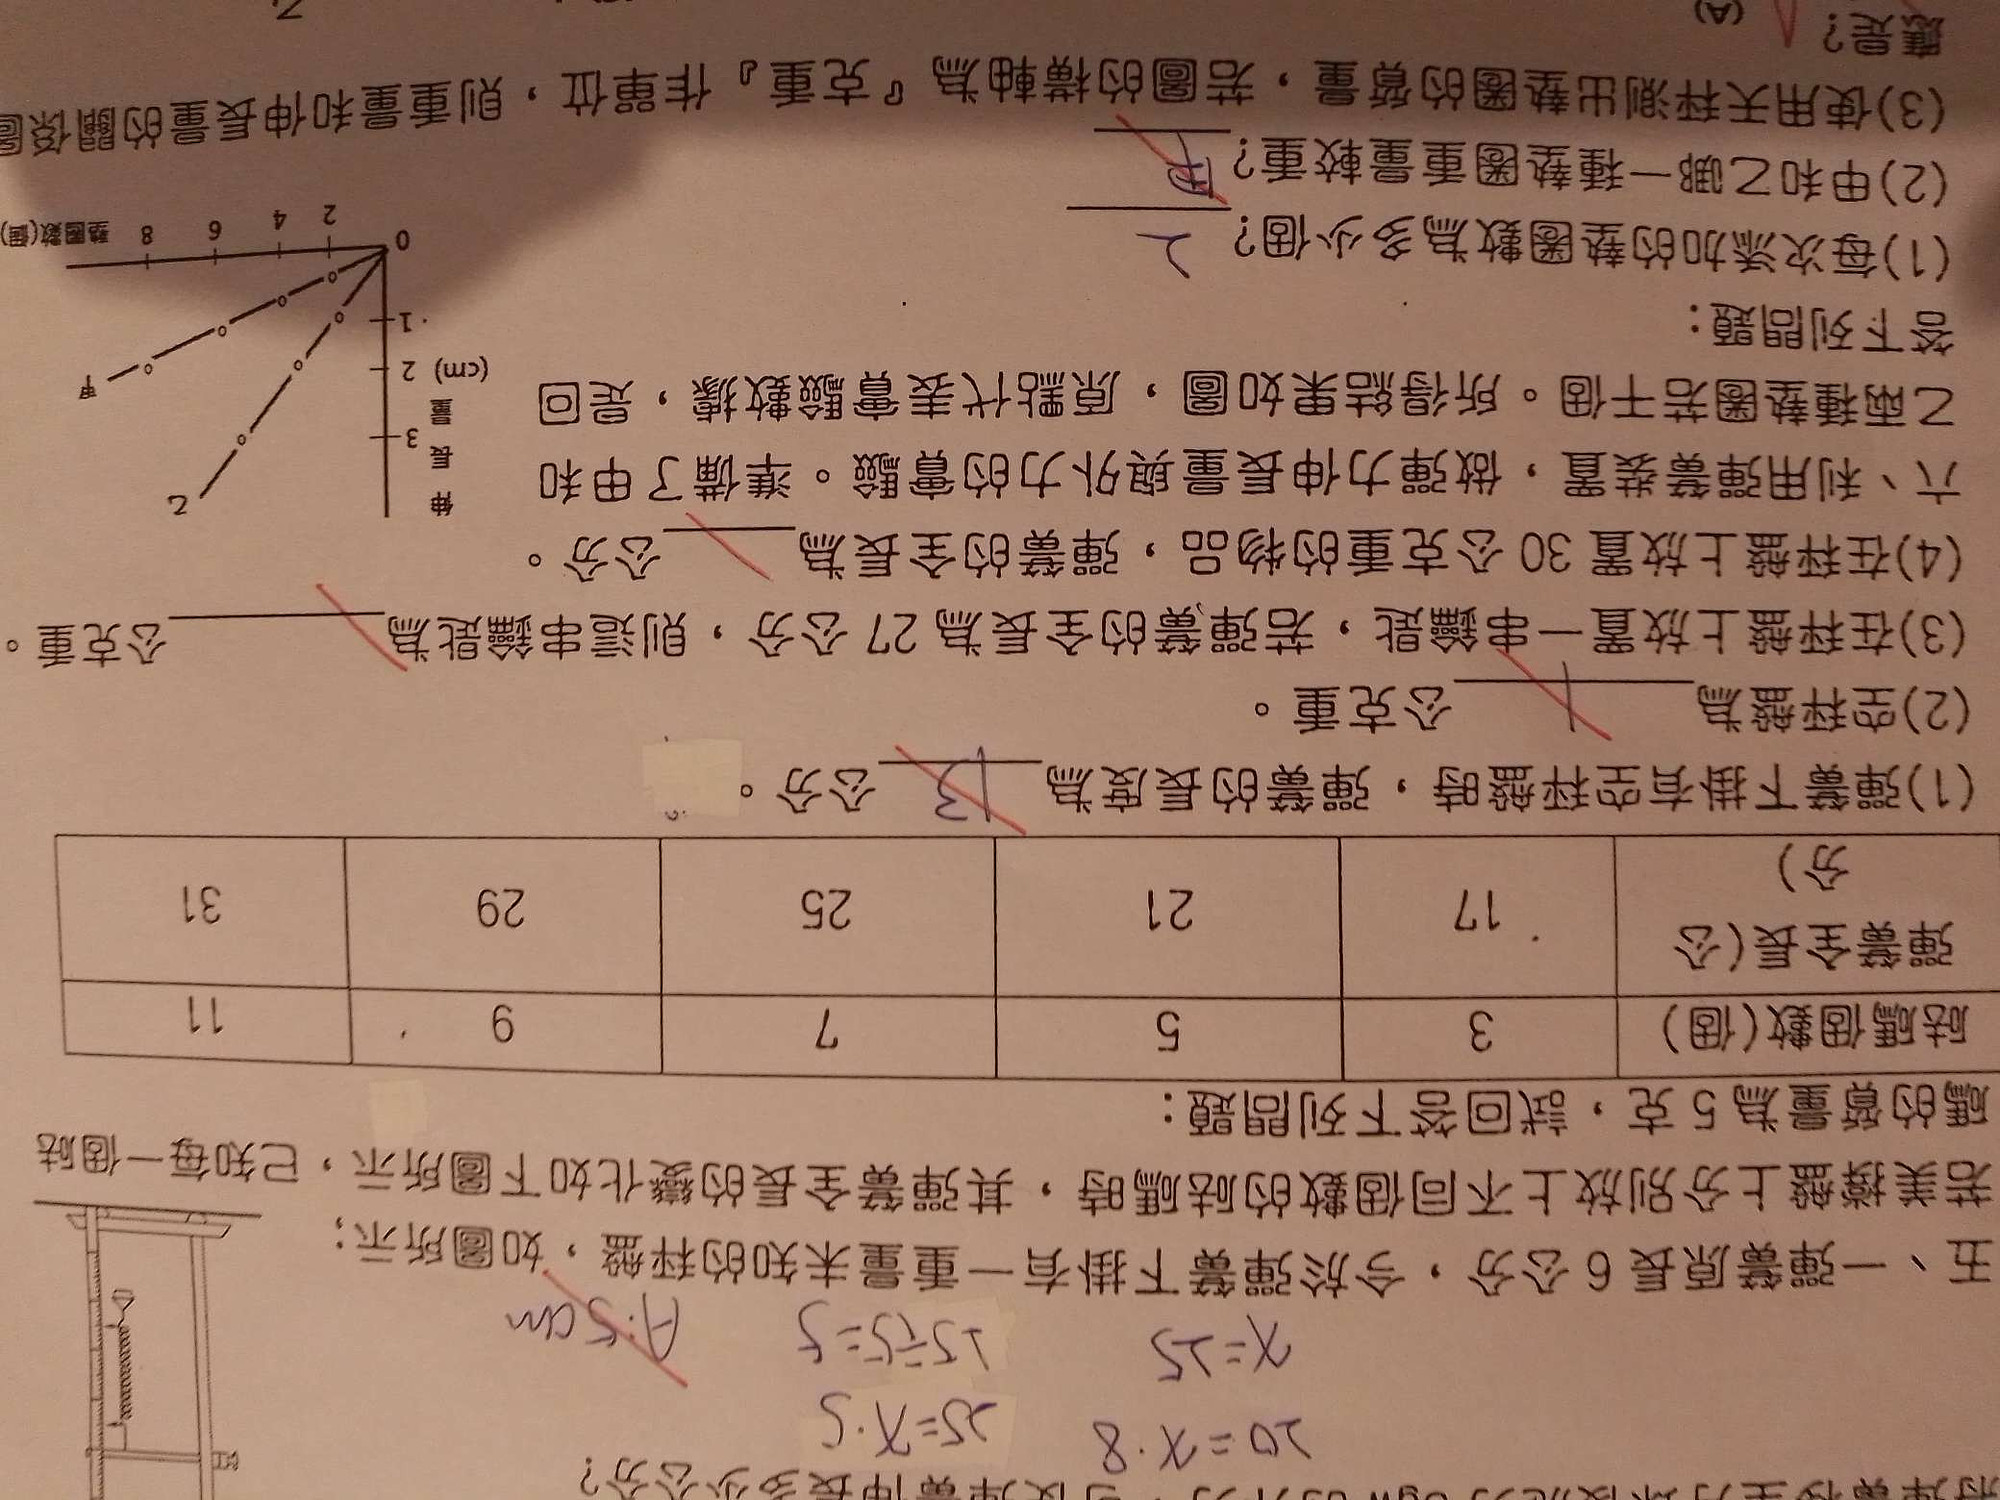 20 = x · 8
25 = x · 5
x = 25
25 ÷ 5 = 5
A: 5 cm
五、一彈簧原長 6 公分，今於彈簧下掛有一重量未知的秤盤，如圖所示；
若美擦盤上分別放上不同個數的砝碼時，其彈簧全長的變化如下圖所示，已知每一個砝
碼的質量為 5 克，試回答下列問題：
砝碼個數(個) 3 5 7 9 11
彈簧全長(公分) 17 21 25 29 31
(1)彈簧下掛有空秤盤時，彈簧的長度為 13 公分。
(2)空秤盤為 1 公克重。
(3)在秤盤上放置一串鑰匙，若彈簧的全長為 27 公分，則這串鑰匙為____公克重。
(4)在秤盤上放置 30 公克重的物品，彈簧的全長為____公分。
六、利用彈簧裝置，做彈力伸長量與外力的實驗。準備了甲和
乙兩種墊圈若干個。所得結果如圖，原點代表實驗數據，是回
答下列問題：
伸長量 (cm)
3
2
1
0 2 4 6 8 墊圈數(個)
乙
甲
(1)每次添加的墊圈數為多少個? 2
(2)甲和乙哪一種墊圈重量較重? 甲
(3)使用天秤測出墊圈的質量，若圖的橫軸為『克重』作單位，則重量和伸長量的關係圖
應是?
(A)
乙